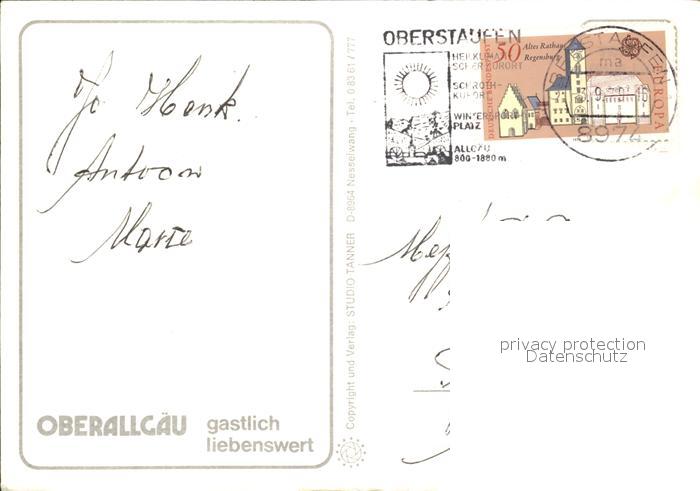 Jo Henk.
Antoon
Marie
OBERALLGÄU gastlich
liebenswert
Copyright und Verlag: STUDIO TANNER D-8964 Nesselwang · Tel. 0 83 61 / 777
OBERSTAUFEN
HEILKLIMA
SCHROTH-
KURORT
WINTERSPORT-
PLATZ
ALLGÄU
800-1880 m
50 Altes Rathaus
Regensburg
DEUTSCHE BUNDESPOST
EUROPA
OBERSTAUFEN
ma
8974
privacy protection
Datenschutz